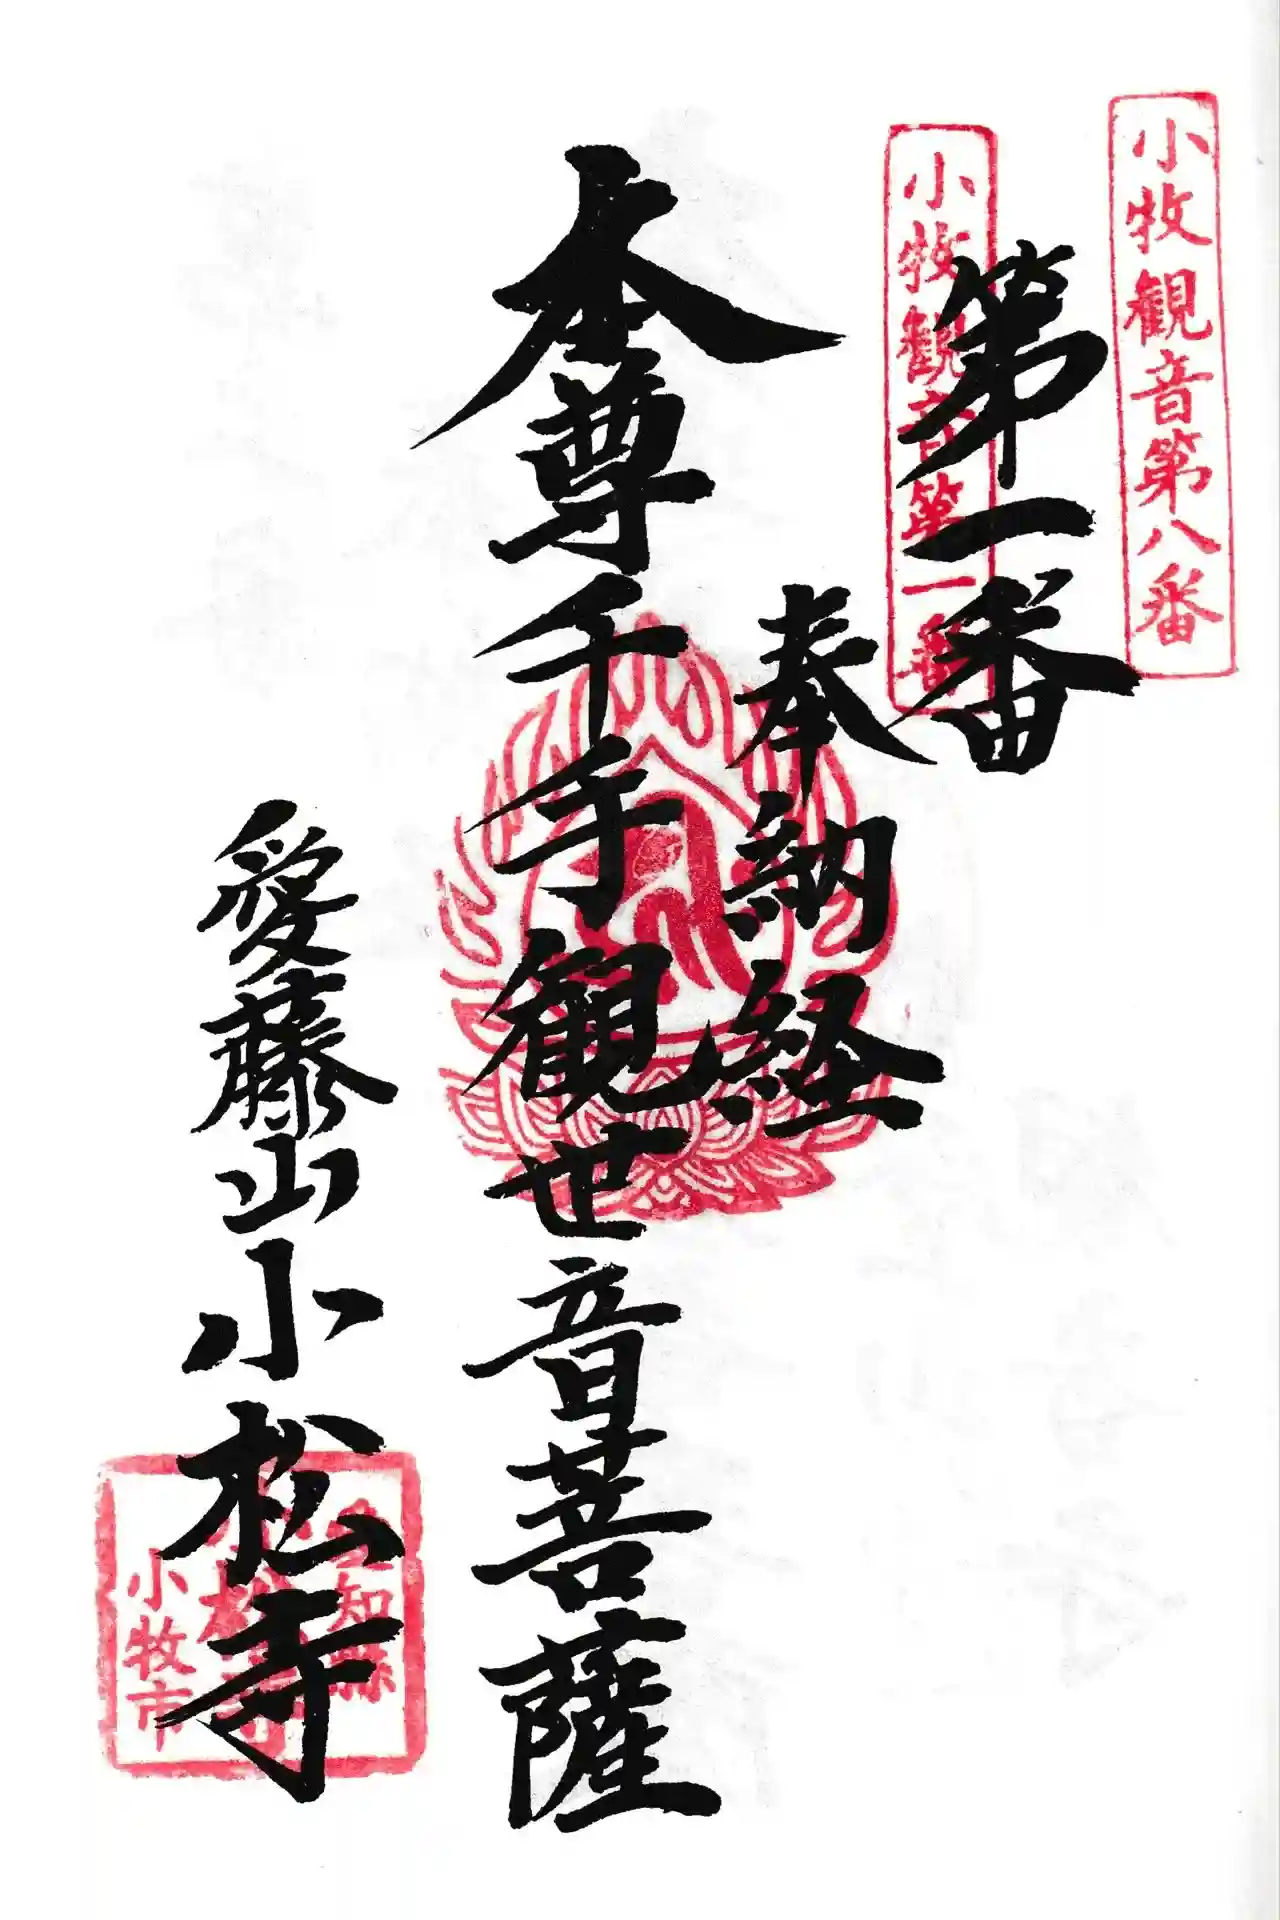 小牧観音第八番
小牧観音第一番
第一番
奉納経
本尊千手観世音菩薩
愛藤山小松寺
愛知縣
小牧市